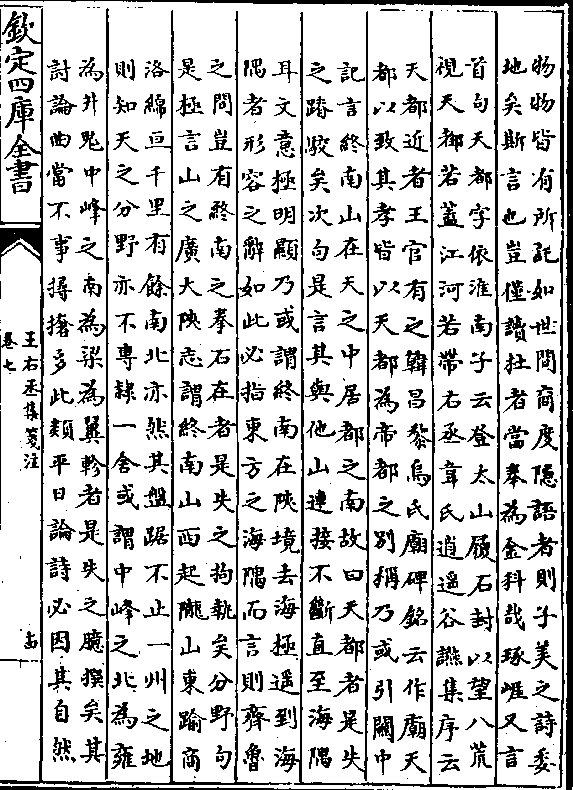 物物皆有所託如世間商度隱語者則子美之詩委
地矣斯言也豈僅讀杜者當奉為金科哉琢崖又言
首句天都字依淮南子云登太山履石封以望八荒
視天都若蓋江河若帶右丞韋氏逍遙谷讌集序云
天都近者王官有之韓昌黎烏氏廟碑銘云作廟天
都以致其孝皆以天都為帝都之別稱乃或引關中
記言終南山在天之中居都之南故曰天都者是失
之踳駮矣次句是言其與他山連接不斷直至海隅
耳文意極明顯乃或謂終南在陝境去海極遥到海
隅者形容之辭如此必指東方之海隅而言則齊魯
之間豈有終南之拳石在者是失之拘執矣分野句
是極言山之廣大陝志謂終南山西起隴山東踰商
洛綿亘千里有餘南北亦然其盤踞不止一州之地
則知天之分野亦不專隸一舍或謂中峰之北為雍
為井鬼中峰之南為梁為翼軫者是失之臆撰矣其
討論曲當不事撏撦多此類平日論詩必因其自然
欽定四庫全書
王右丞集箋注
卷七